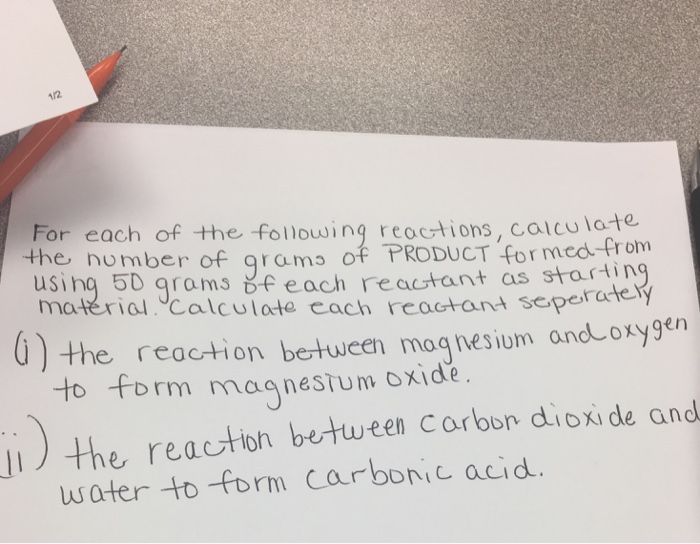 1/2
For each of the following reactions, calculate
the number of grams of PRODUCT formed from
using 50 grams of each reactant as starting
material. Calculate each reactant seperately
(i) the reaction between magnesium and oxygen
to form magnesium oxide.
ii) the reaction between carbon dioxide and
water to form carbonic acid.